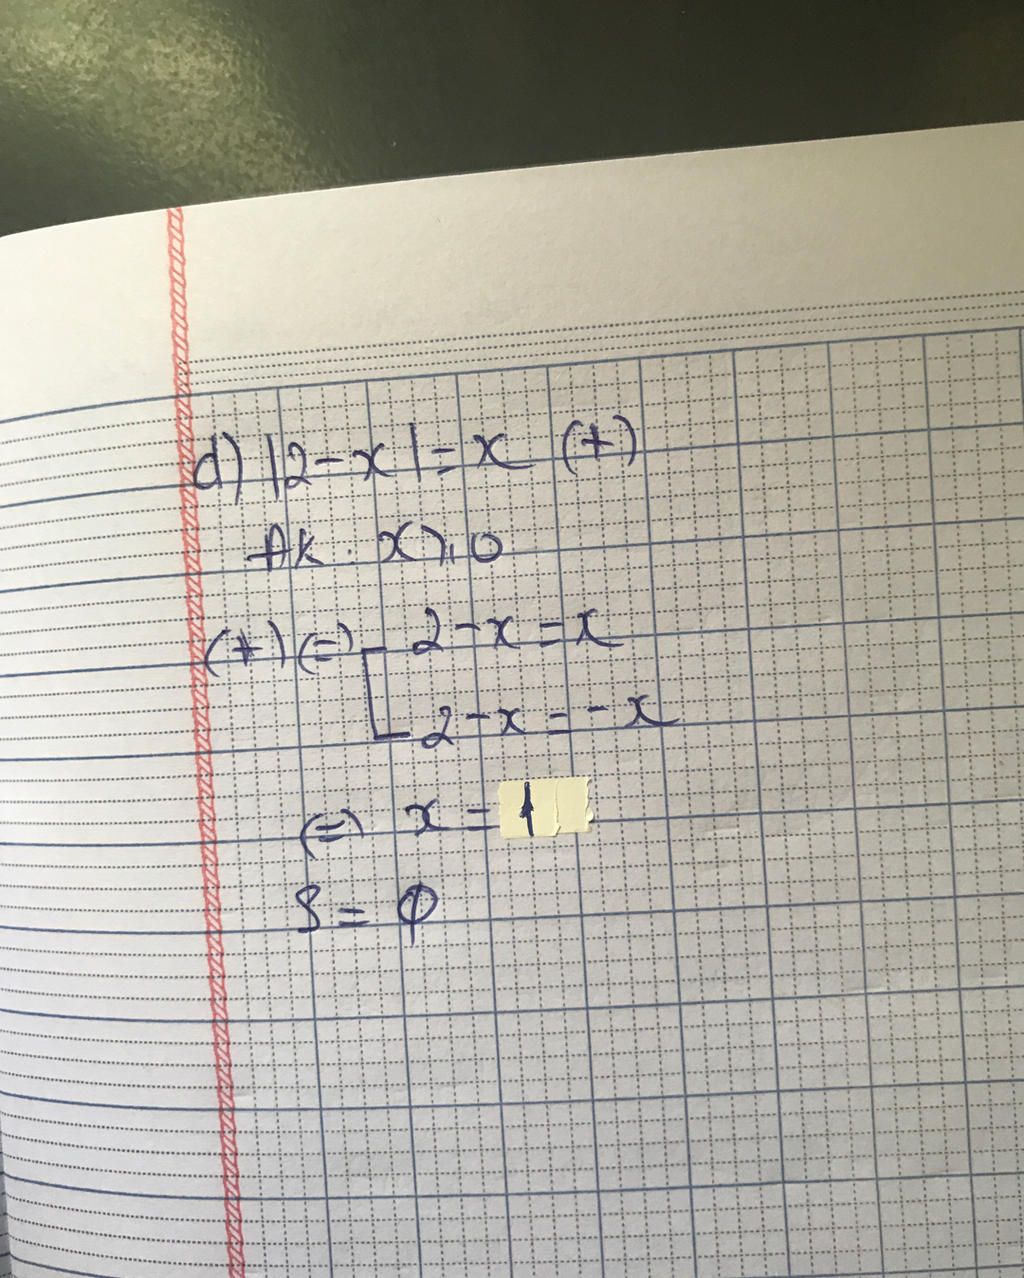 d) |2-x| = x (*)
ĐK: x ⩾ 0
(*) (=) [ 2-x = x
2-x = -x
(=) x = 1
S = ∅